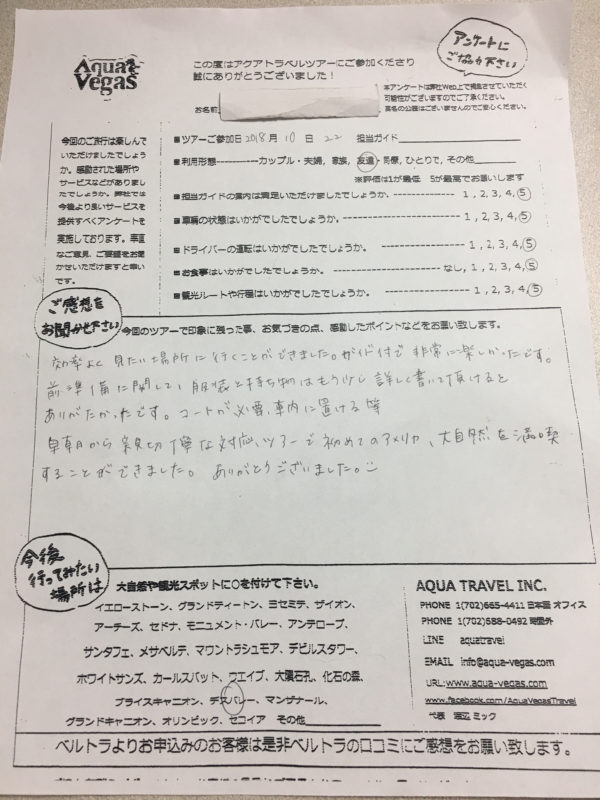 Aqua Vegas
この度はアクアトラベルツアーにご参加くださり
誠にありがとうございました！
アンケートに
ご協力下さい
本アンケートは弊社Web上で掲載させていただく
可能性がございますのでご了承ください。
実名の公開はございませんのでご安心ください。
お名前
今回のご旅行は楽しんで
いただけましたでしょう
か。感動された場所や
サービスなどがありまし
たでしょうか。弊社では
今後より良いサービスを
提供すべくアンケートを
実施しております。率直
なご意見、ご要望をお聞
かせいただけますと幸い
です。
■ツアーご参加日 2018月 10 日 22 担当ガイド
■利用形態-----------カップル・夫婦, 家族, 友達・同僚, ひとりで, その他
※評価は1が最低 5が最高でお願いします
■担当ガイドの案内は満足いただけましたでしょうか。------------ 1 , 2, 3, 4, 5
■車輛の状態はいかがでしたでしょうか。-------------------- 1 , 2, 3, 4, 5
■ドライバーの運転はいかがでしたでしょうか。---------------- 1 , 2, 3, 4, 5
■お食事はいかがでしたでしょうか。---------------- なし, 1 , 2, 3, 4, 5
■観光ルートや行程はいかがでしたでしょうか。---------------- 1 , 2, 3, 4, 5
ご感想を
お聞かせ下さい
今回のツアーで印象に残った事、お気づきの点、感動したポイントなどをお願い致します。
効率よく見たい場所に行くことができました。ガイド付で非常に楽しかったです。
前準備に関して、服装と持ち物はもう少し詳しく書いて頂けると
ありがたかったです。コートが必要、車内に置ける等
早朝から親切丁寧な対応、ツアーで初めてのアメリカ、大自然を満喫
することができました。ありがとうございました。
今後
行ってみたい
場所は
大自然や観光スポットに〇を付けて下さい。
イエローストーン、グランドティートン、ヨセミテ、ザイオン、
アーチーズ、セドナ、モニュメント・バレー、アンテロープ、
サンタフェ、メサベルデ、マウントラシュモア、デビルスタワー、
ホワイトサンズ、カールスバット、ウエイブ、大隕石孔、化石の森、
ブライスキャニオン、デスバレー、マンザナール、
グランドキャニオン、オリンピック、セコイア その他
AQUA TRAVEL INC.
PHONE 1(702)665-4411 日本語 オフィス
PHONE 1(702)688-0492 時間外
LINE aquatravel
EMAIL info@aqua-vegas.com
URL:www.aqua-vegas.com
www.facebook.com/AquaVegasTravel
代表 渡辺 ミック
ベルトラよりお申込みのお客様は是非ベルトラの口コミにご感想をお願い致します。